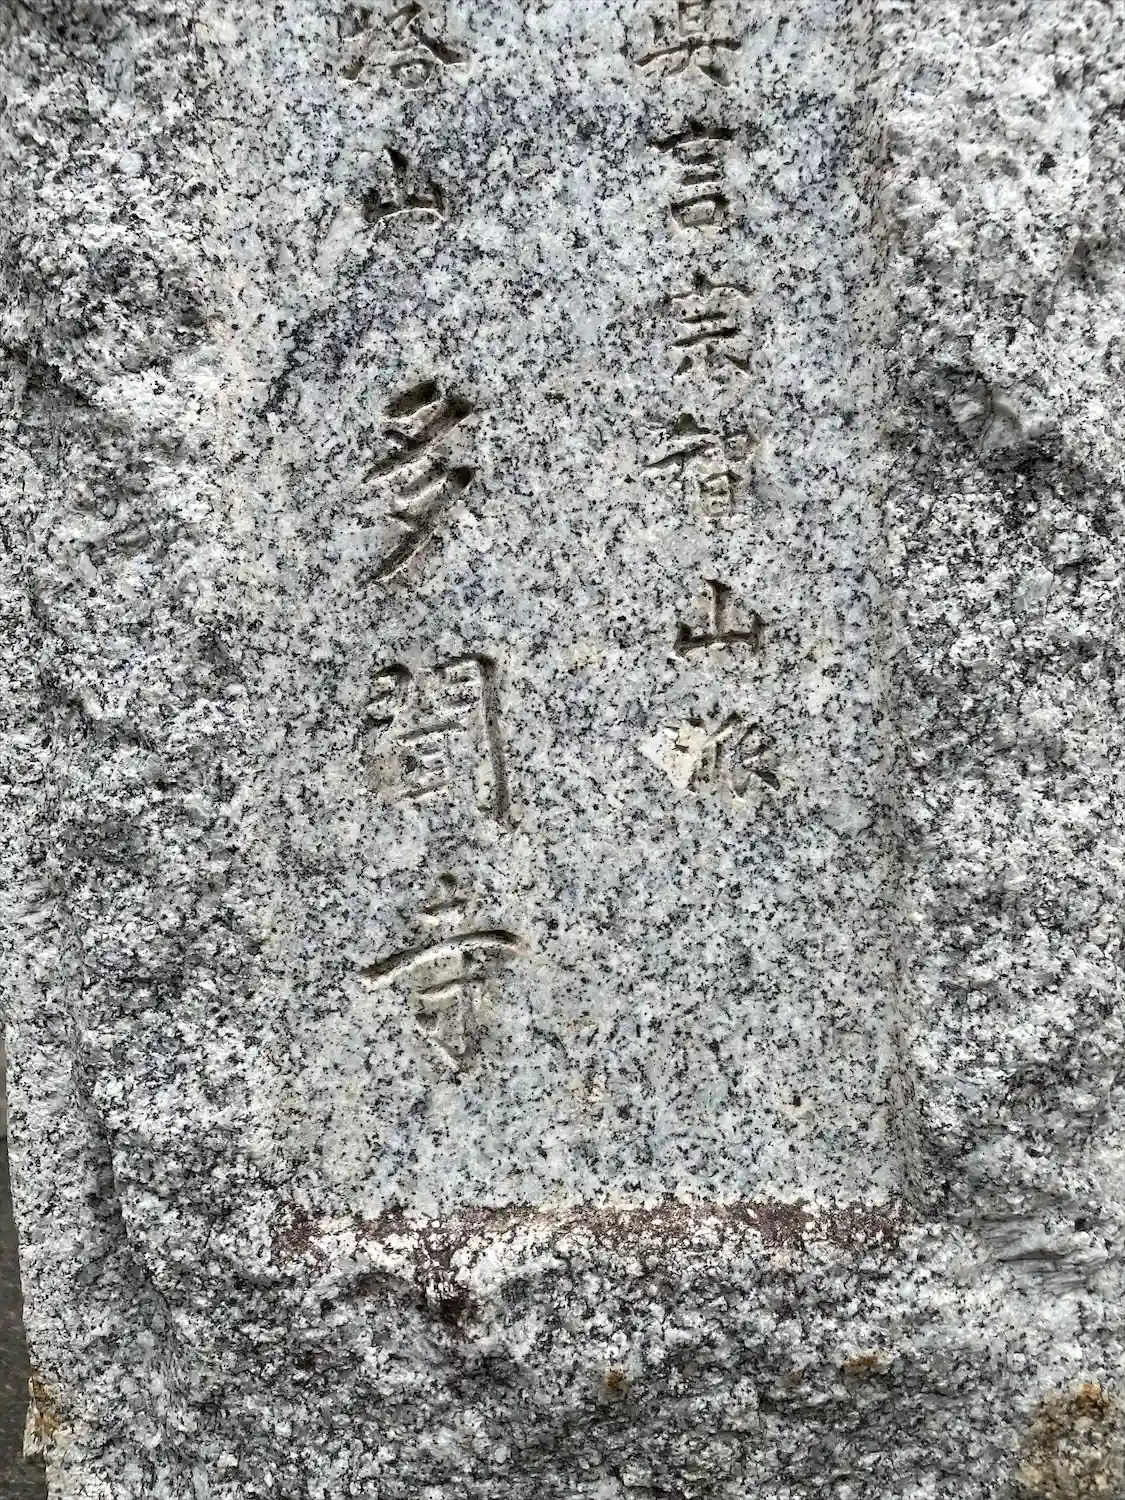 眞言宗智山派
山多聞寺